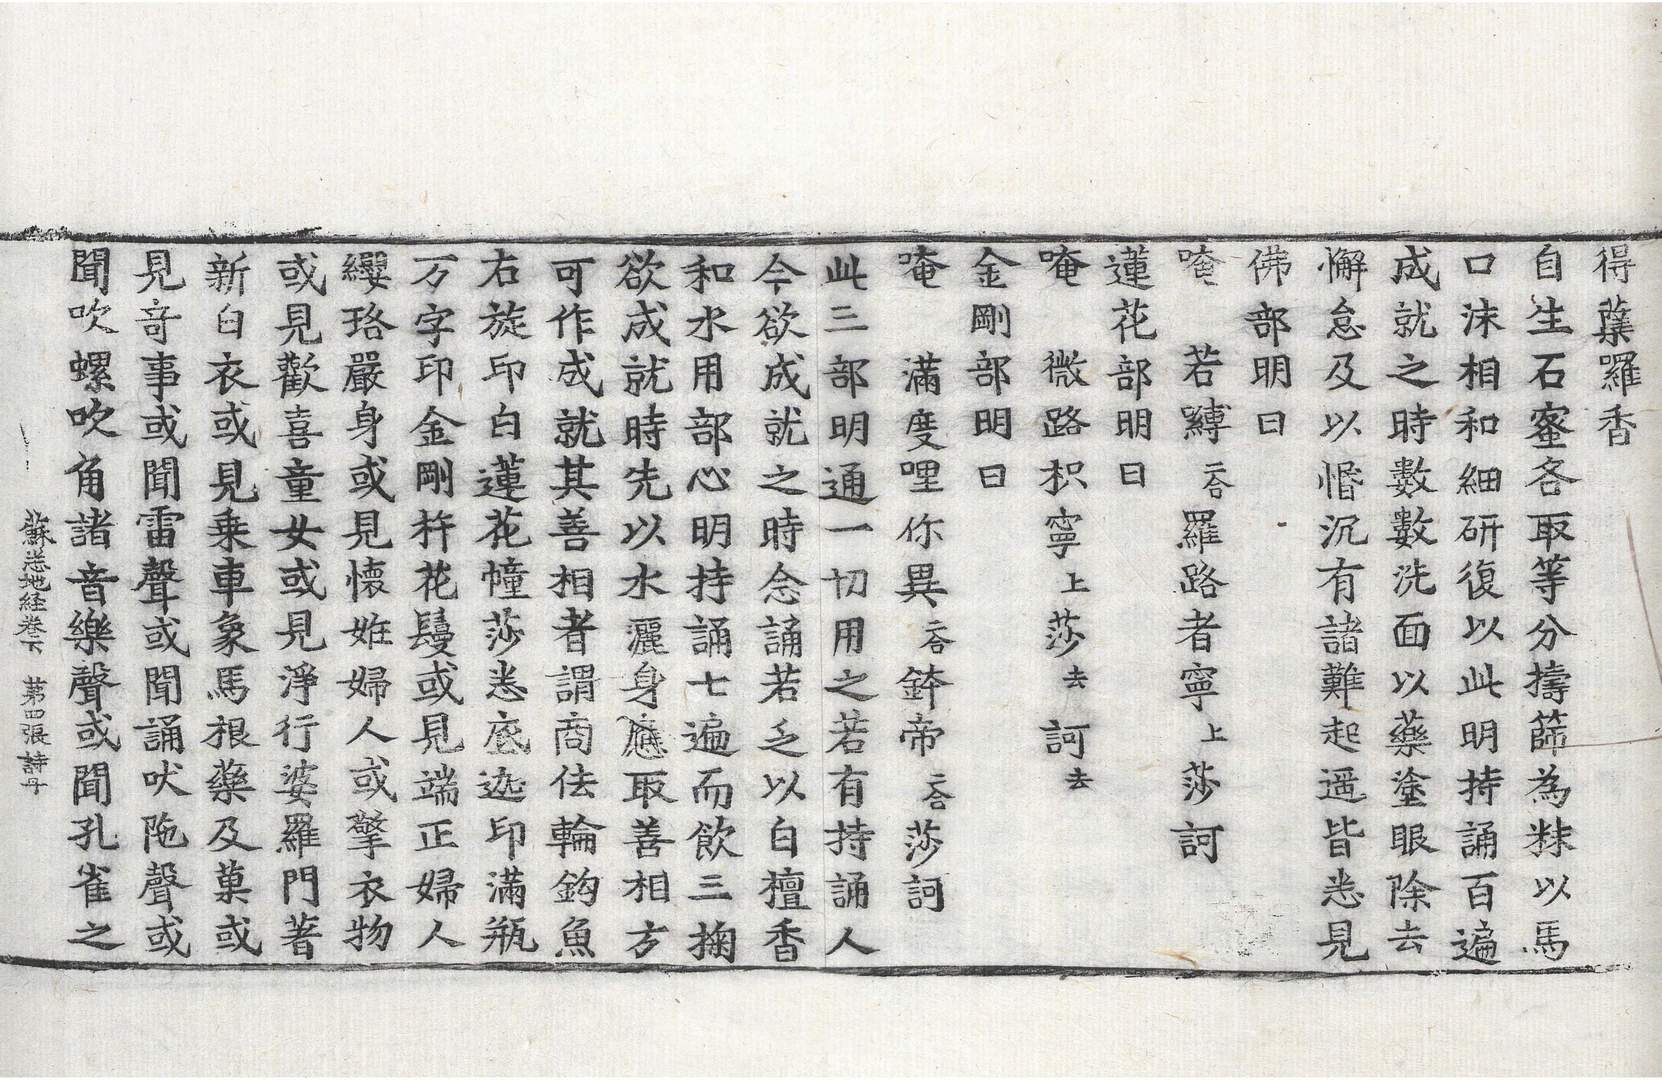 得蘗羅香
自生石蜜各取等分擣篩為粖以馬
口沫相和細研復以此明持誦百遍
成就之時數數洗面以藥塗眼除去
懈怠及以惛沉有諸難起遥皆悉見
佛部明曰
唵　若縛二合羅路者寧上莎訶
蓮花部明曰
唵　微路枳寧上莎去訶去
金剛部明曰
唵　滿度哩你異二合鉢帝二合莎訶
此三部明通一切用之若有持誦人
今欲成就之時念誦若乏以白檀香
和水用部心明持誦七遍而飲三掬
欲成就時先以水灑身應取善相方
可作成就其善相者謂商佉輪鈎魚
右旋印白蓮花幢莎悉底迦印滿瓶
万字印金剛杵花鬘或見端正婦人
纓珞嚴身或見懷姙婦人或擎衣物
或見歡喜童女或見淨行婆羅門著
新白衣或見乗車象馬根藥及菓或
見奇事或聞雷聲或聞誦吠陁聲或
聞吹螺吹角諸音樂聲或聞孔雀之
蘇悉地経巻下　苐四張詩丹